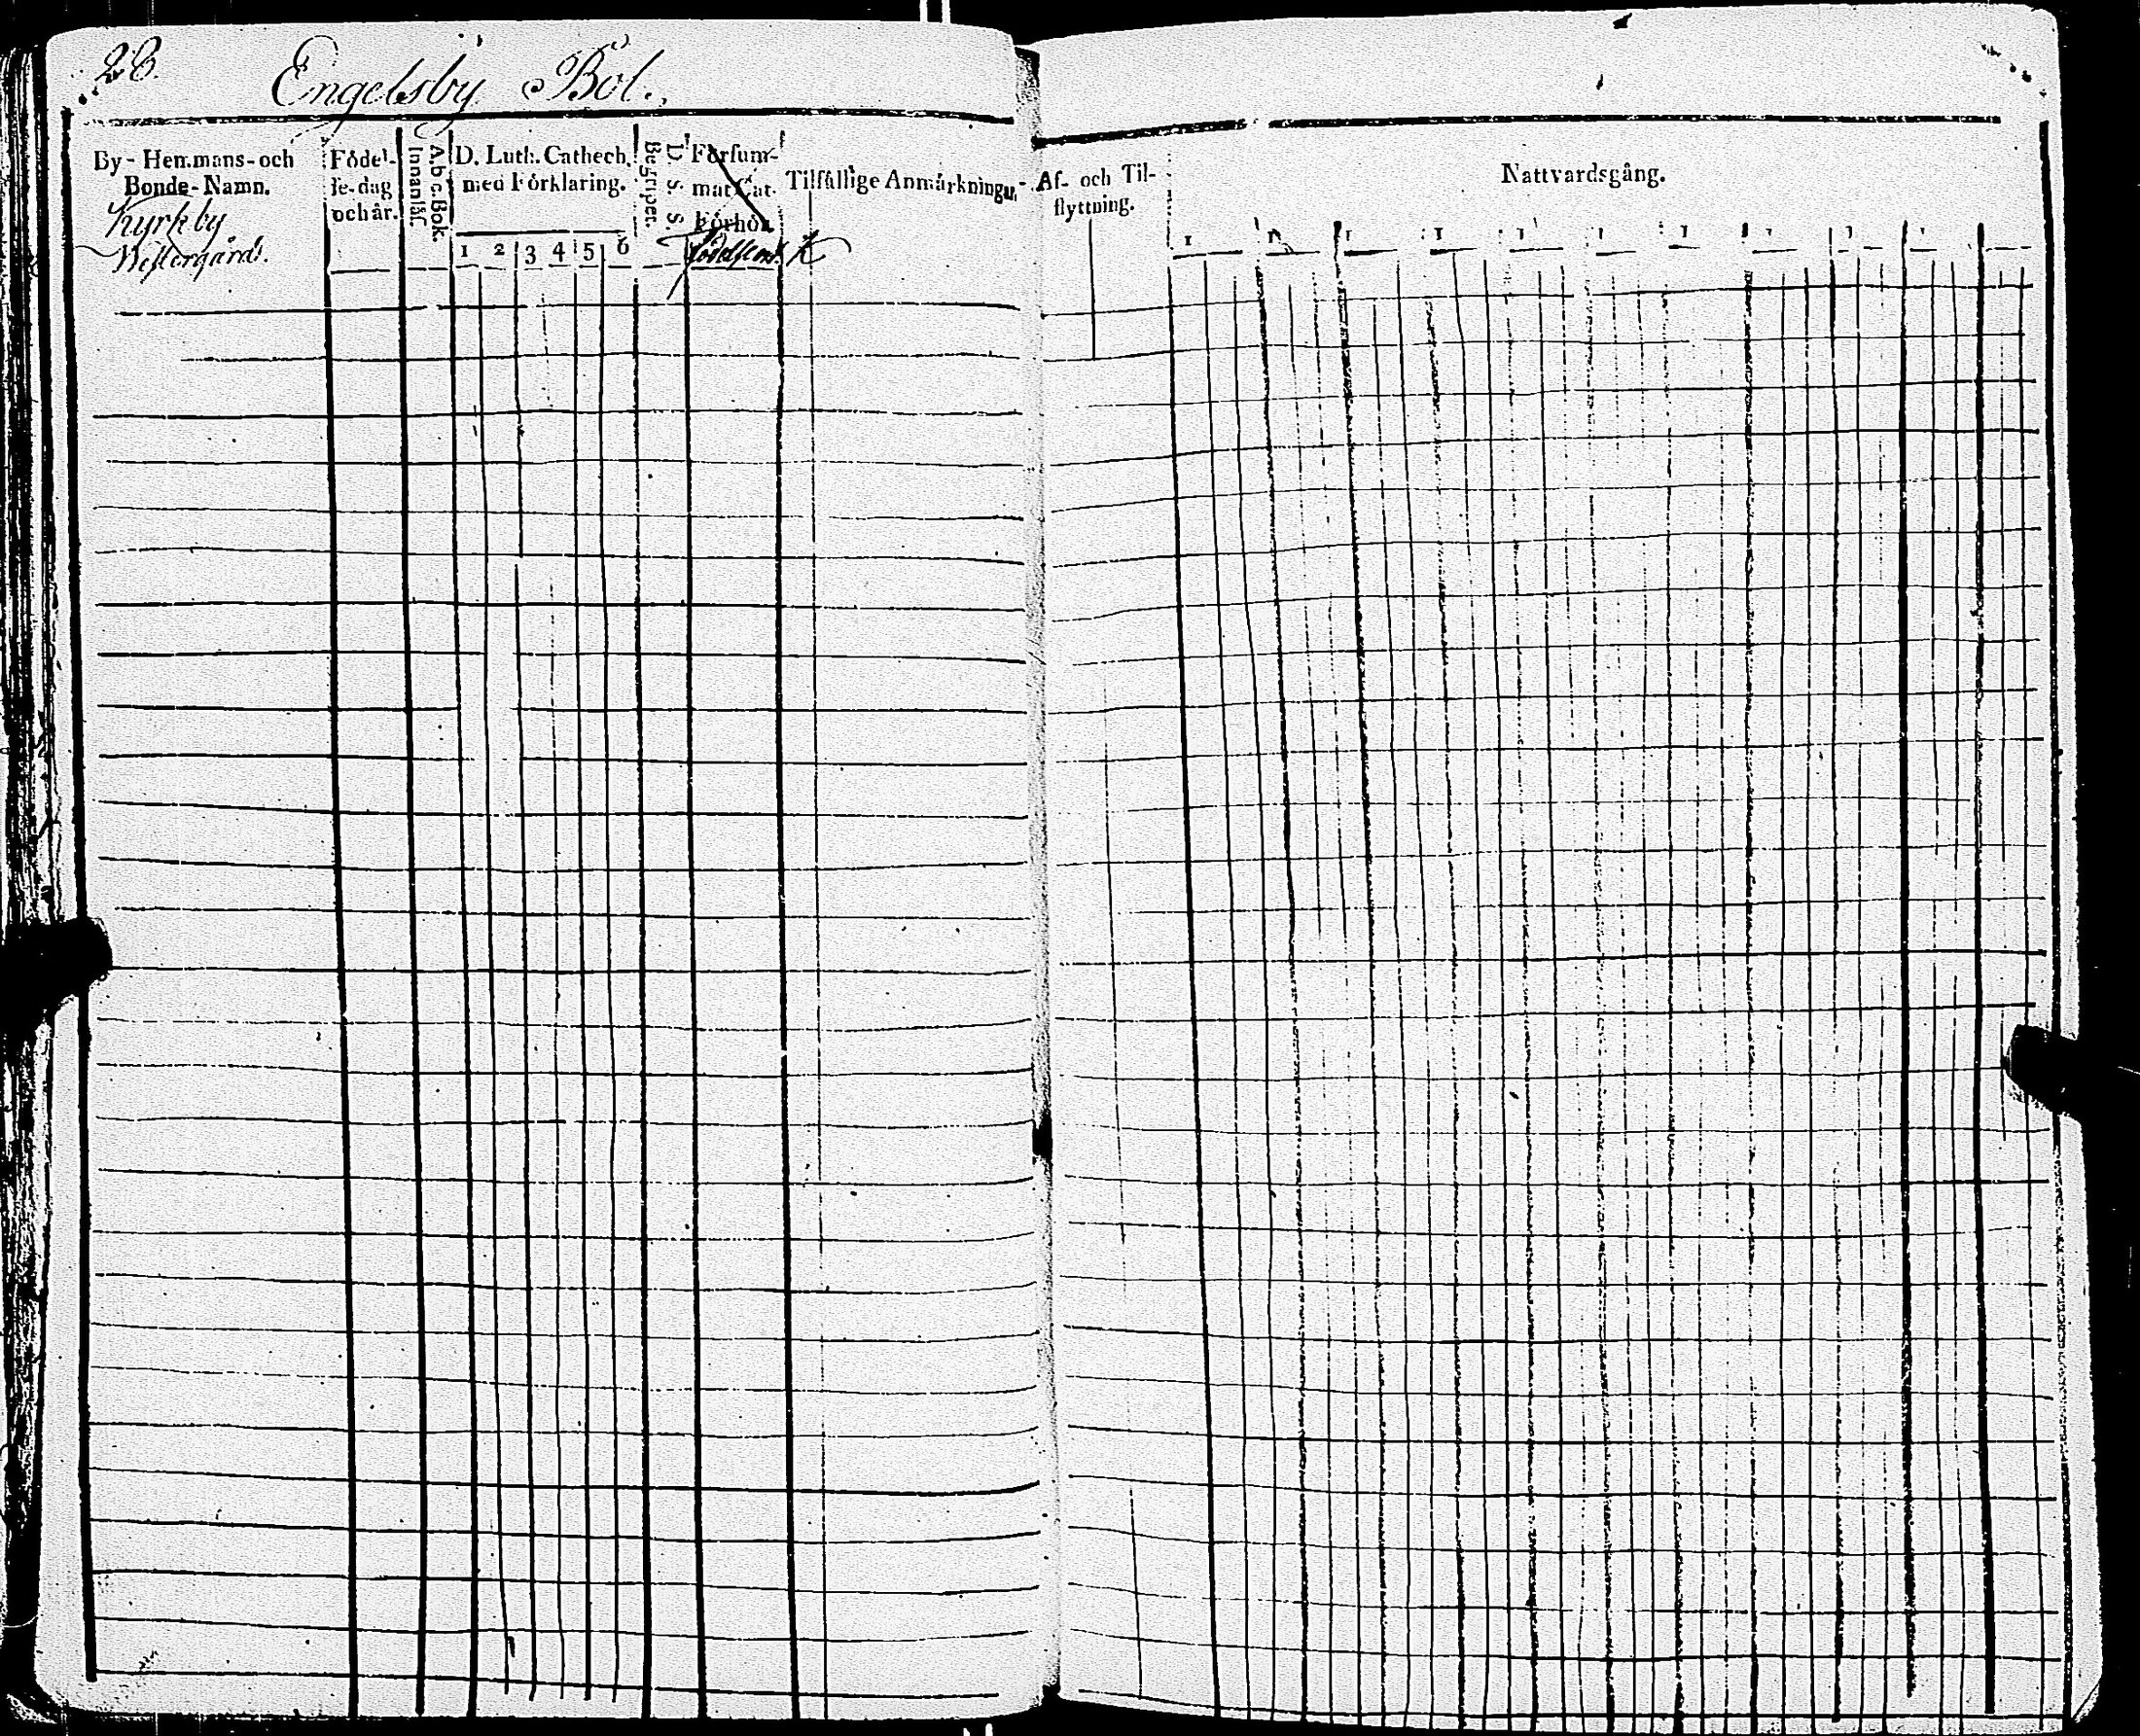 Engelsby Bol.
By-Hemmans-och
Bonde-Namn.
Kyrkby
Westergårds.
Födel-
se-dag
och år.
Abc-Bok.
Innanläs.
D. Luth. Cathech.
med Förklaring.
1 2 3 4 5 6
D. S. S.
Begripet.
Försum-
mat Cat.
Förhör
Tilfällige Anmärkningar.
Af- och Til-
flyttning.
Nattvardsgång.